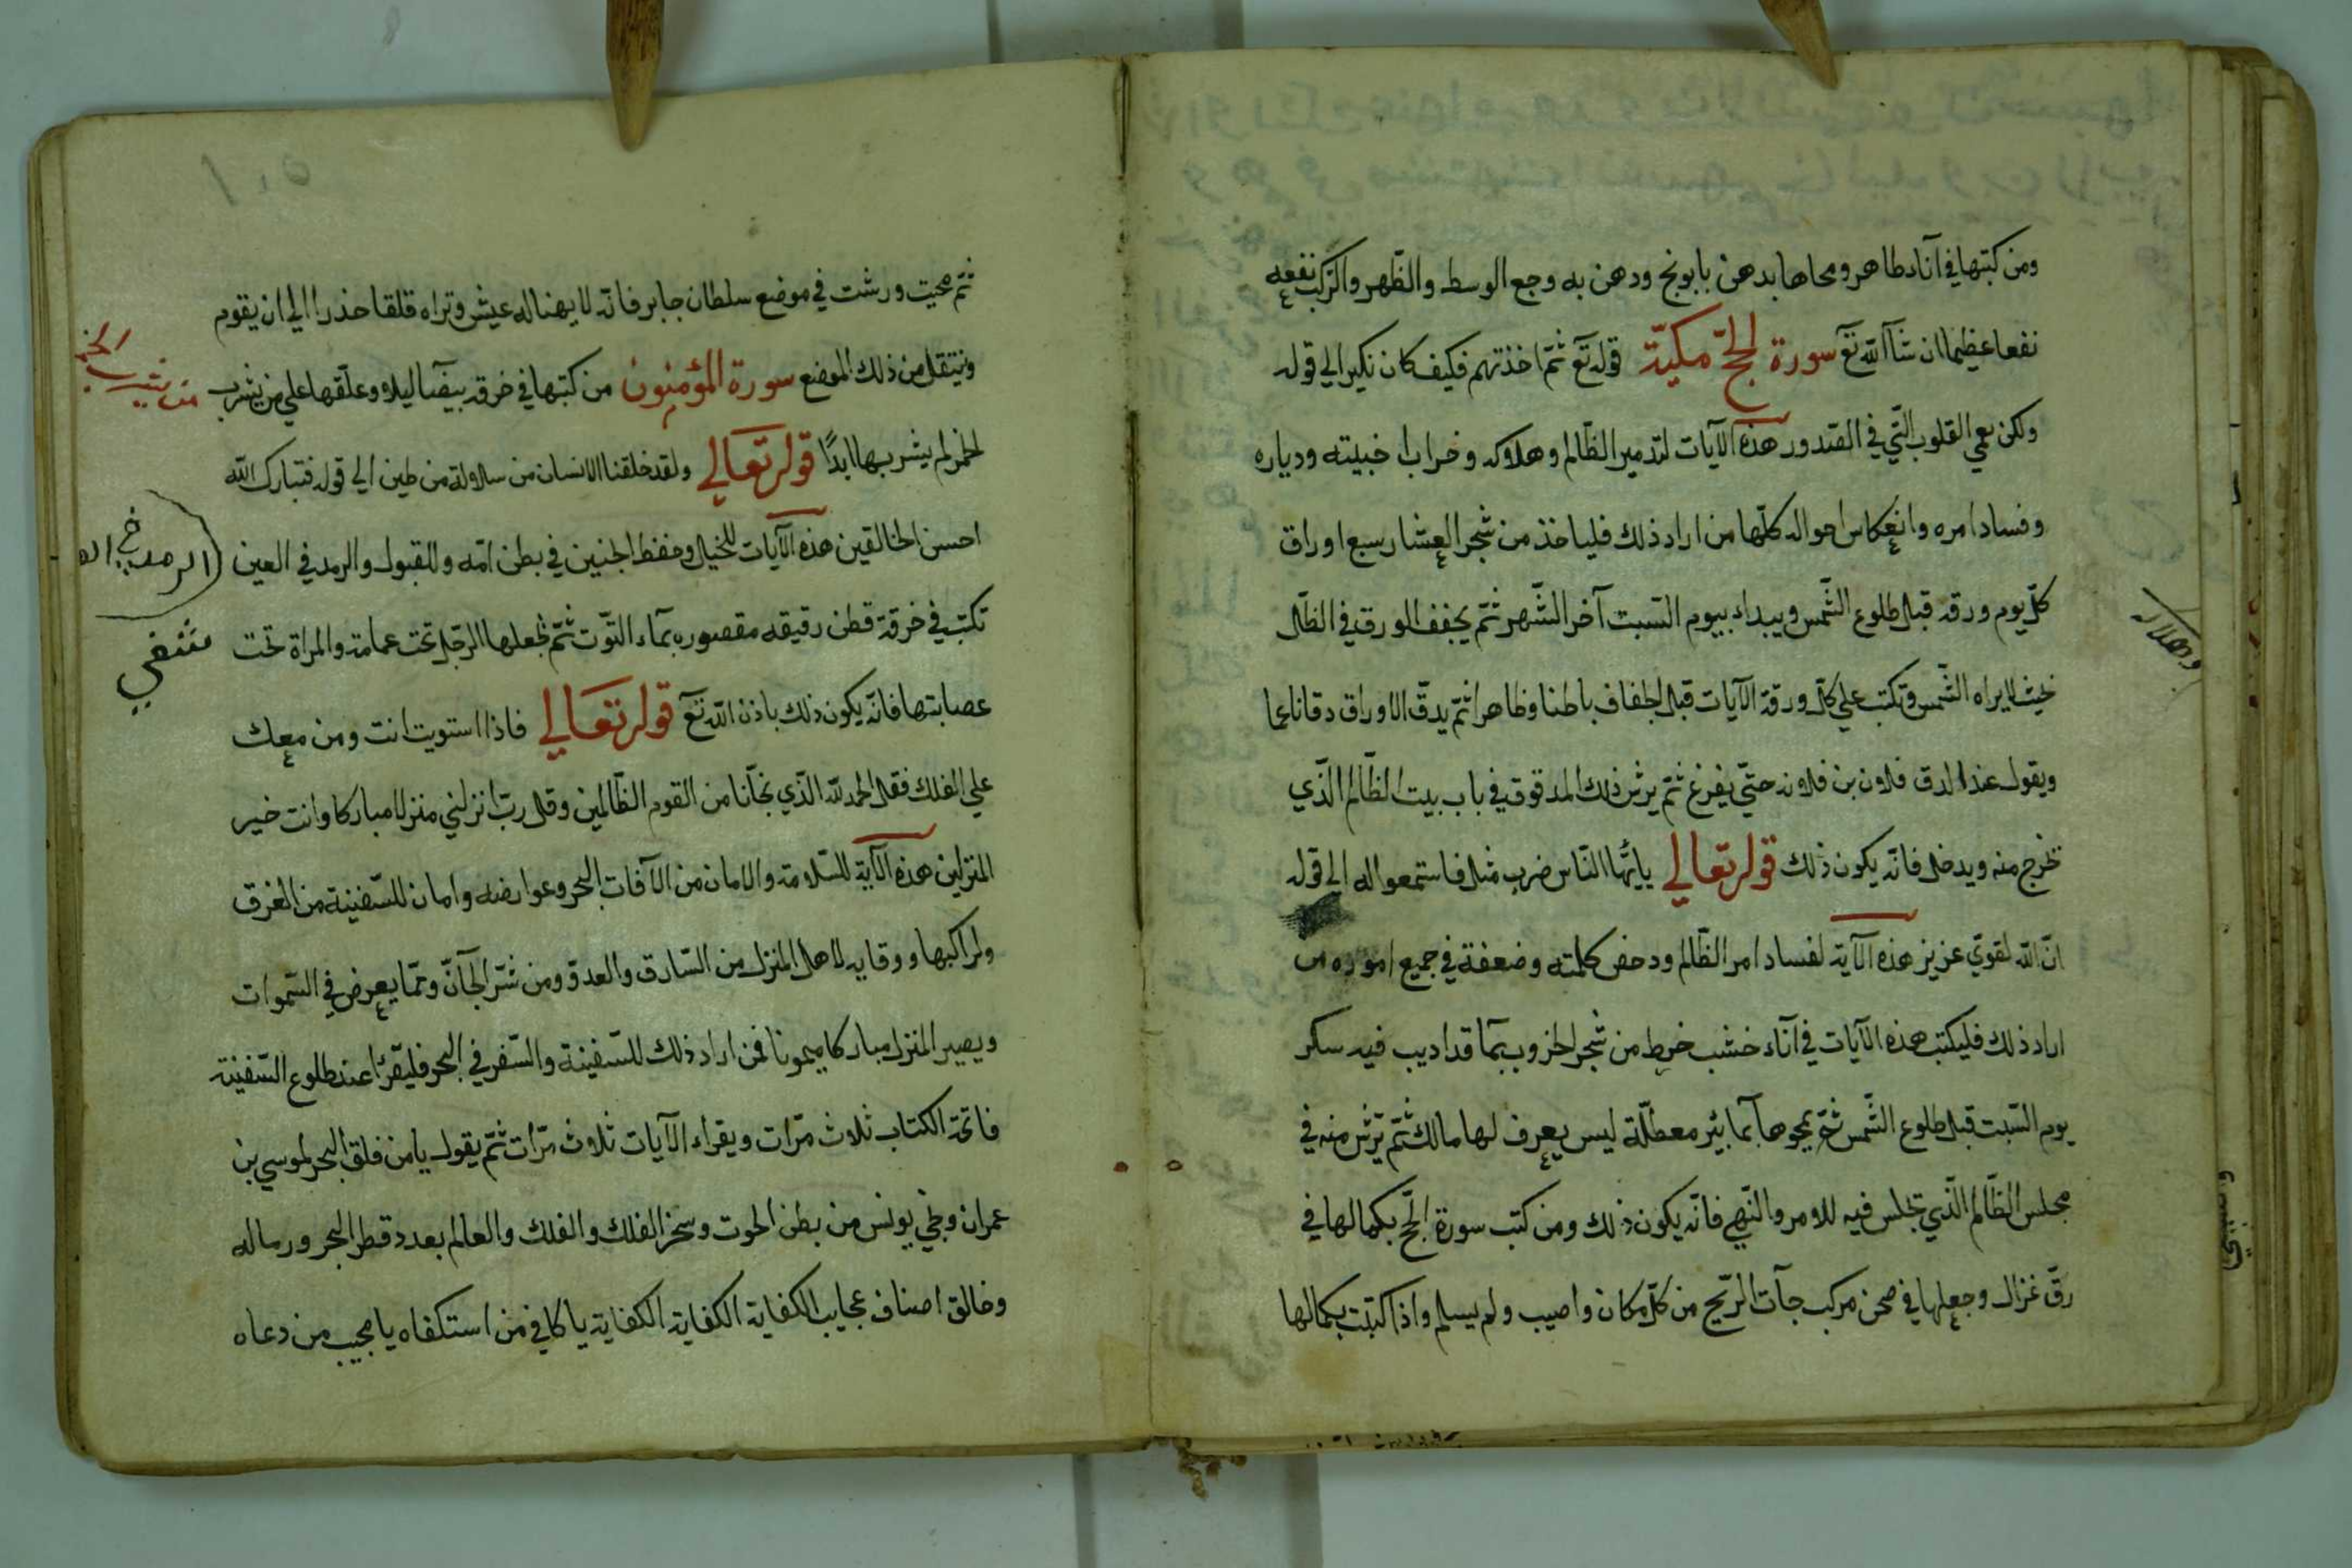 ومن كتبها في آناء طاهر ومحاها بدهن بابونج ودهن به وجع الوسط والظهر والركب نفعه
نفعا عظيما ان شآ الله تع سورة الحجّ مكيّة قوله تع ثمّ اخذتهم فكيف كان نكير الي قوله
ولكن تعمي القلوب التّي في الصّدور هذه الآيات لتدمير الظّالم وهلاكه وخراب اخبيته ودياره
وفساد امره وانعكاس احواله كلّها من اراد ذلك فلياخذ من شجر العشار سبع اوراق
كلّ يوم ورقه قبل طلوع الشّمس ويبداء بيوم السّبت آخر الشّهر ثمّ يجفف الورق في الظّل
بحيث لايراه الشّمس وتكتب علي كلّ ورقة الآيات قبل الجفاف باطنا وظاهرا ثمّ يدقّ الاوراق دقا ناعما
ويقول عند الدق فلان بن فلانه حتّي يفرغ ثمّ يرش ذلك المدقوق في باب بيت الظّالم الّذي
تخرج منه ويدخل فانّه يكون ذلك قوله تعالي ياايّها النّاس ضرب مثل فاستمعوا له الي قوله
انّ الله لقويّ عزيز هذه الآية لفساد امر الظّالم ودحض كلمته وضعفة في جميع اموره من
اراد ذلك فليكتب هذه الآيات في آناء خشب خرط من شجر الخروب بمآ قد اديب فيه سكر
يوم السّبت قبل طلوع الشّمس ثمّ يمحوها بمآ بئر معطلّة ليس يعرف لها مالك ثمّ ترش منه في
مجلس الظّالم الّذي تجلس فيه للامر والنّهي فانّه يكون ذلك ومن كتب سورة الحّج بكمالها في
رقّ غزال وجعلها في صحن مركب جآت الرّيح من كلّ مكان واصيب ولم يسلم واذا كتبت بكمالها
وهلاك
ثمّ محيت ورشت في موضع سلطان جابر فانّه لا يهنا له عيش وتراه قلقا حذرا الي ان يقوم
وينتقل من ذلك الموضع سورة المؤمنون من كتبها في خرقه بيضآ ليلا وعلّقها علي من يشرب
الخمر لم يشربها ابدًا قوله تعالي ولقد خلقنا الانسان من سلالة من طين الي قوله فتبارك الله
احسن الخالقين هذه الآيات للخيل وحفظ الجنين في بطن امّه وللقبول والرمد في العين
تكتب في خرقة قطن رقيقه مقصوره بمآء التّوت ثمّ تجعلها الرّجل تحت عمامته والمراة تحت
عصابتها فانّه يكون ذلك باذن الله تع قوله تعالي فاذا استويت انت ومن معك
علي الفلك فقل الحمد لله الّذي نجّانا من القوم الظّالمين وقل ربّ انزلني منزلا مباركا وانت خير
المنزلين هذه الآية للسّلامة والامان من الآفات البحر وعوارضه وامان للسّفينة من الغرق
ولراكبها ووقايه لاهل المنزل من السّارق والعدوّ ومن شرّ الجآنّ وممّا يعرض في السّموات
ويصير المنزل مباركا ميمونا فمن اراد ذلك للسّفينة والسّفر في البحر فليقرئا عند طلوع السّفينة
فاتحة الكتاب ثلاث مرّات ويقراء الآيات ثلاث مرّات ثمّ يقول يامن فلق البحر لموسي بن
عمران ونجّي يونس من بطن الحوت وسخر الفلك والفلك والعالم بعدد قطر البحر ورماله
وخالق اصناف عجايب الكفاية الكفاية الكفاية ياكافي من استكفاه يا مجيب من دعاه
من يشرب الخمر
الرمد